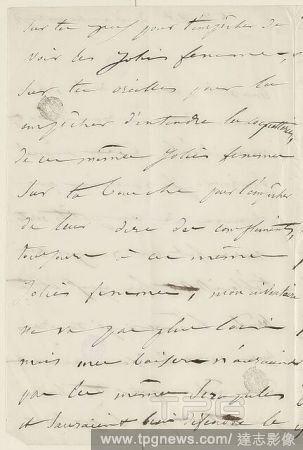 sur tes yeux pour t'empêcher de
voir des jolies femmes,
sur tes oreilles pour les
empêcher d'entendre les
de ces mêmes jolies femmes
sur ta bouche pour l'empêcher
de leur dire des compliments,
toujours à ces mêmes
jolies femmes, mon inventaire
ne va pas plus loin
mais mes baisers n'auraient
pas les mêmes scrupules
et sauraient bien défendre le
TPG
www.tpgnews.com/ 達志影像